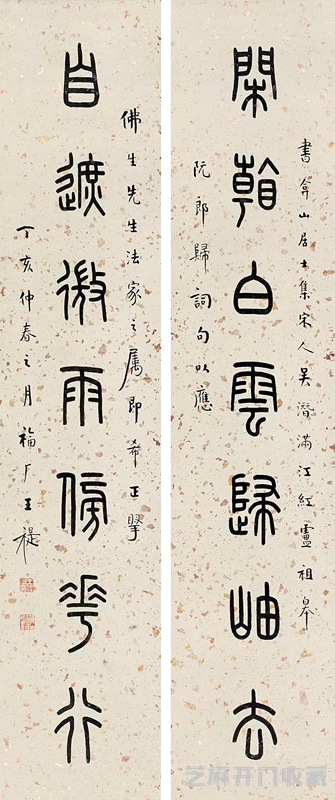 書弇山居士集宋人吳潛滿江紅盧祖皋
閑看白雲歸岫去
阮郎歸詞句以應
佛生先生法家之属即希正掔
自遮微雨傍花行
丁亥仲春之月福厂王禔
芝麻开门收藏